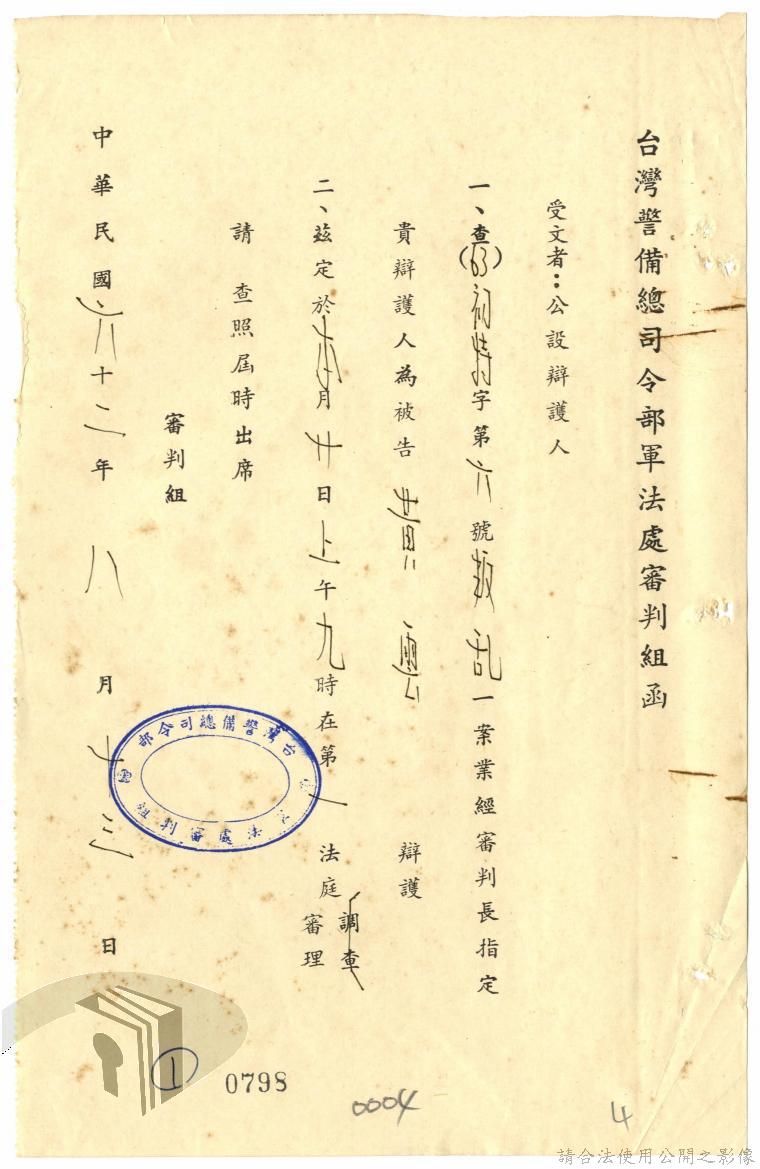 台灣警備總司令部軍法處審判組函
受文者：公設辯護人
一、查(63)初特字第六號叛乱一案業經審判長指定
貴辯護人為被告黃雲辯護
二、茲定於本月廿日上午九時在第一法庭調查審理
請查照屆時出席
審判組
中華民國六十二年八月十三日
台灣警備總司令部
法處審判
①
0798
0004
4
請合法使用公開之影像